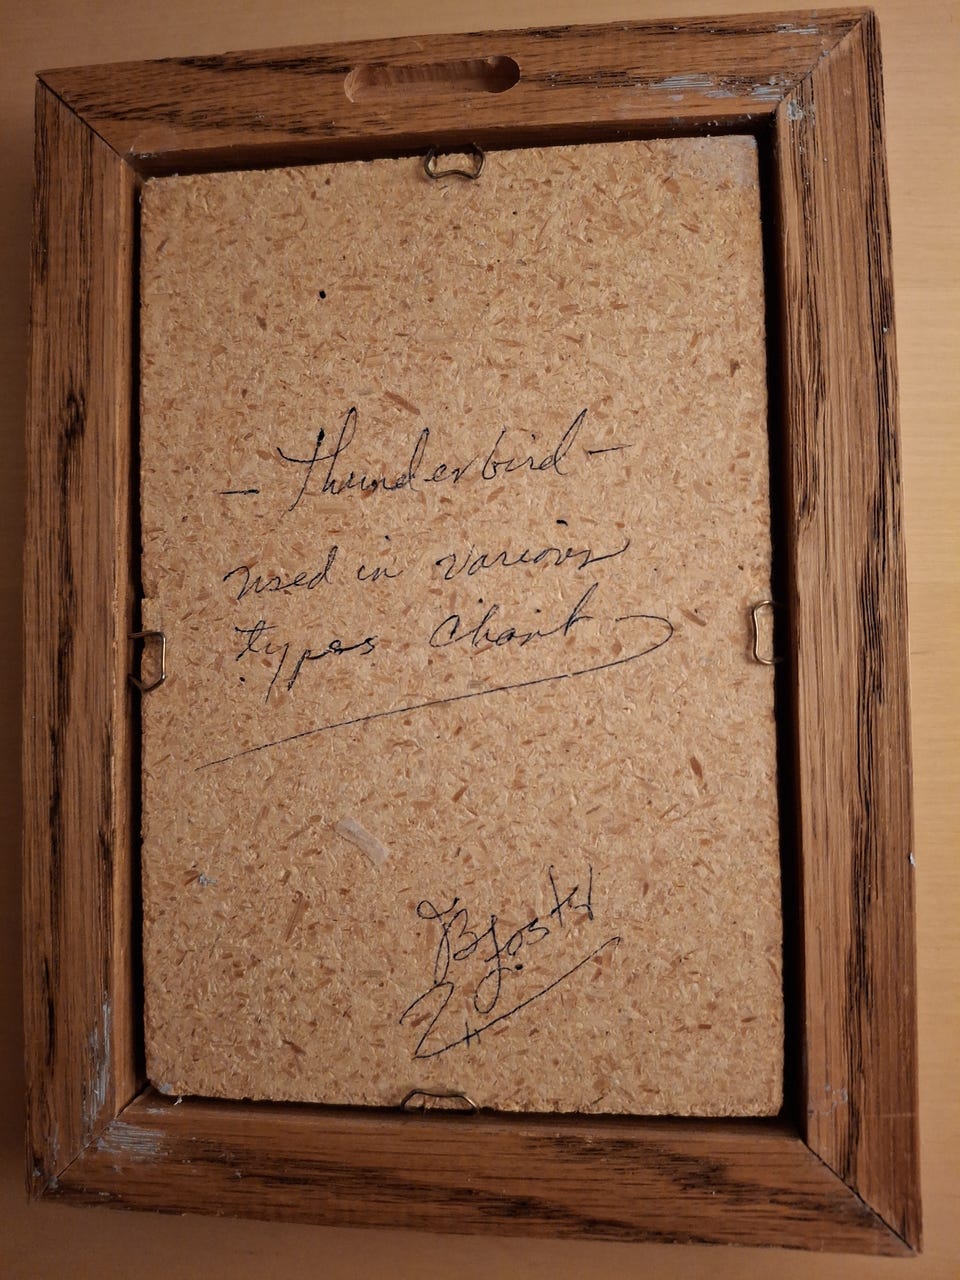 - Thunderbird -
used in various
types chant
BFoster